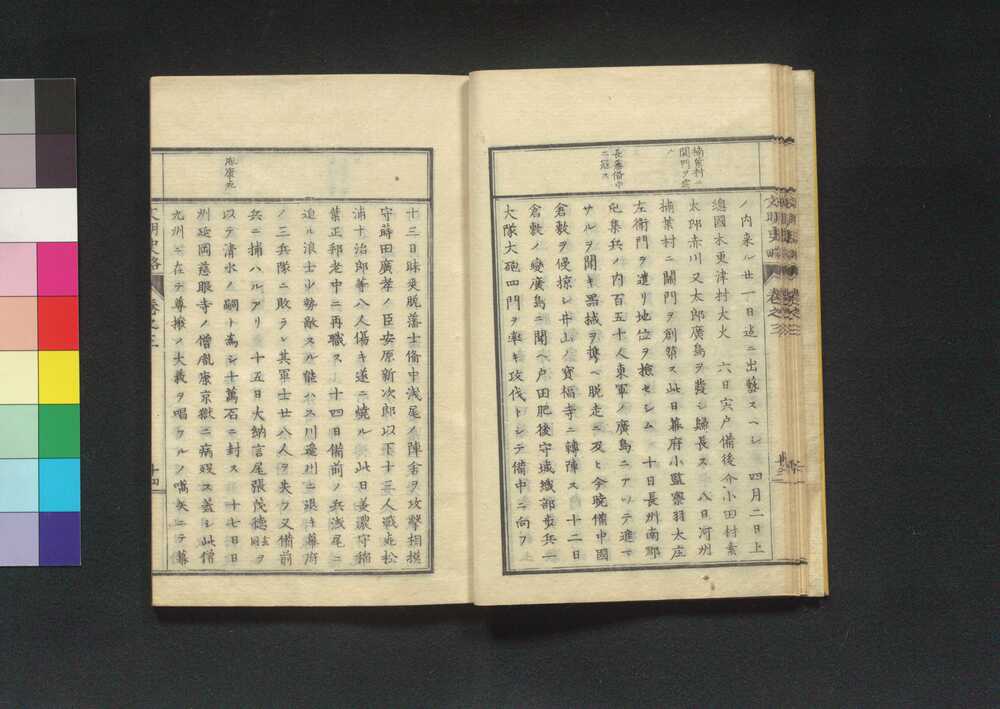 楠葉村ニ
関門ヲ置
ク
長藩備中
ニ冦ス
文明史略
巻之三
ノ内来ル廿一日迄ニ出藝スヘシ 四月二日上
総國木更津村大火 六日宍戸備後介小田村素
太郎赤川又太郎廣島ヲ發シ歸長ス 八日河州
楠葉村ニ関門ヲ創築ス此日幕府小監察羽太庄
左衛門ヲ遣リ地位ヲ撿セシム 十日長州南部
屯集兵ノ内百五十人東軍ノ廣島ニアツテ進マ
サルヲ聞キ器械ヲ携ヘ脱走ニ及ヒ今晩備中國
倉敷ヲ侵掠シ井山ノ寶福寺ニ轉陣ス 十二日
倉敷ノ變廣島ニ聞ヘ戸田肥後守城織部歩兵一
大隊大砲四門ヲ率キ攻伐トシテ備中ニ向フ
胤康死
十三日昧爽脱藩士備中浅尾ノ陣舎ヲ攻撃相摸
守蒔田廣孝ノ臣安原新次郎以下十三人戰死松
浦十治郎等八人傷キ遂ニ燒ル 此日美濃守稲
葉正邦老中ニ再職ス 十四日備前ノ兵浅尾ニ
迫ル浪士少勢敵スル能ハス川邊川ニ退キ幕府
ノ三兵隊ニ敗ラレ其軍士廿八人ヲ失フ又備前
兵ニ捕ハルアリ 十五日大納言尾張茂德玄同ヲ
以テ清水ノ嗣ト為シ十萬石ニ封ス 十七日日
州延岡慈眼寺ノ僧胤康京獄ニ病殁ス蓋シ此僧
九州ニ在テ尊攘ノ大義ヲ唱フルノ嚆矢ニテ幕
文明史略
巻之三
十四